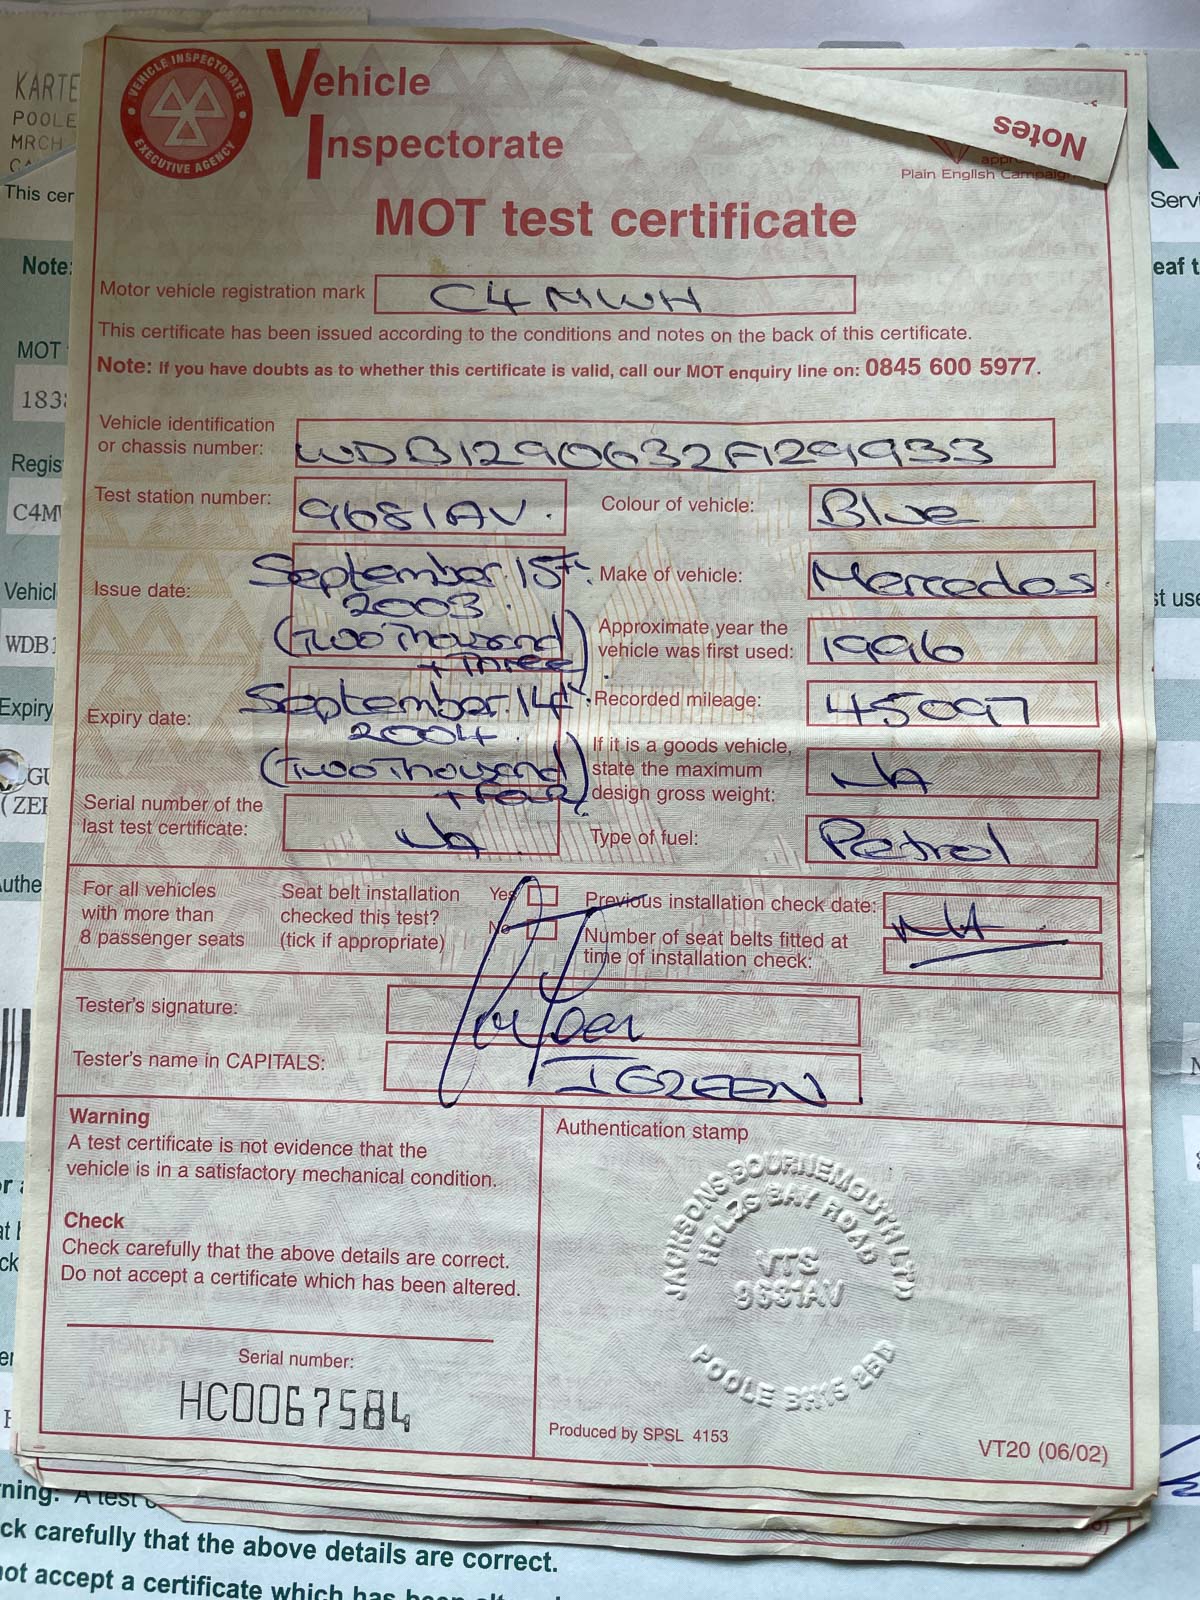 KARTE
POOLE
MRCH
This cer
Note:
MOT
183
Regis
C4M
Vehicl
WDB1
Expiry
GU
(ZER
Authe
VEHICLE INSPECTORATE
EXECUTIVE AGENCY
Vehicle
Inspectorate
Notes
Plain English Campaign
Servi
eaf t
st use
MOT test certificate
Motor vehicle registration mark C4 MWH
This certificate has been issued according to the conditions and notes on the back of this certificate.
Note: If you have doubts as to whether this certificate is valid, call our MOT enquiry line on: 0845 600 5977.
Vehicle identification
or chassis number: WDB1290632F129933
Test station number: 9681AV.
Colour of vehicle: Blue
Issue date: September 15th.
2003.
(Two Thousand
+ Three)
Make of vehicle: Mercedes
Approximate year the
vehicle was first used: 1996
Expiry date: September 14th
2004.
(Two Thousand
+ Four)
Recorded mileage: 45097
If it is a goods vehicle,
state the maximum
design gross weight: NA
Serial number of the
last test certificate: NA
Type of fuel: Petrol
For all vehicles
with more than
8 passenger seats
Seat belt installation
checked this test?
(tick if appropriate)
Yes
No
Previous installation check date: NA
Number of seat belts fitted at
time of installation check:
Tester's signature:
Tester's name in CAPITALS: I GREEN
Warning
A test certificate is not evidence that the
vehicle is in a satisfactory mechanical condition.
Check
Check carefully that the above details are correct.
Do not accept a certificate which has been altered.
Serial number:
HC0067584
Authentication stamp
JACKSONS BOURNEMOUTH LTD
HOLES BAY ROAD
VTS
9681AV
POOLE BH15 2BD
Produced by SPSL 4153
VT20 (06/02)
rning: A test c
ck carefully that the above details are correct.
not accept a certificate which has been alter